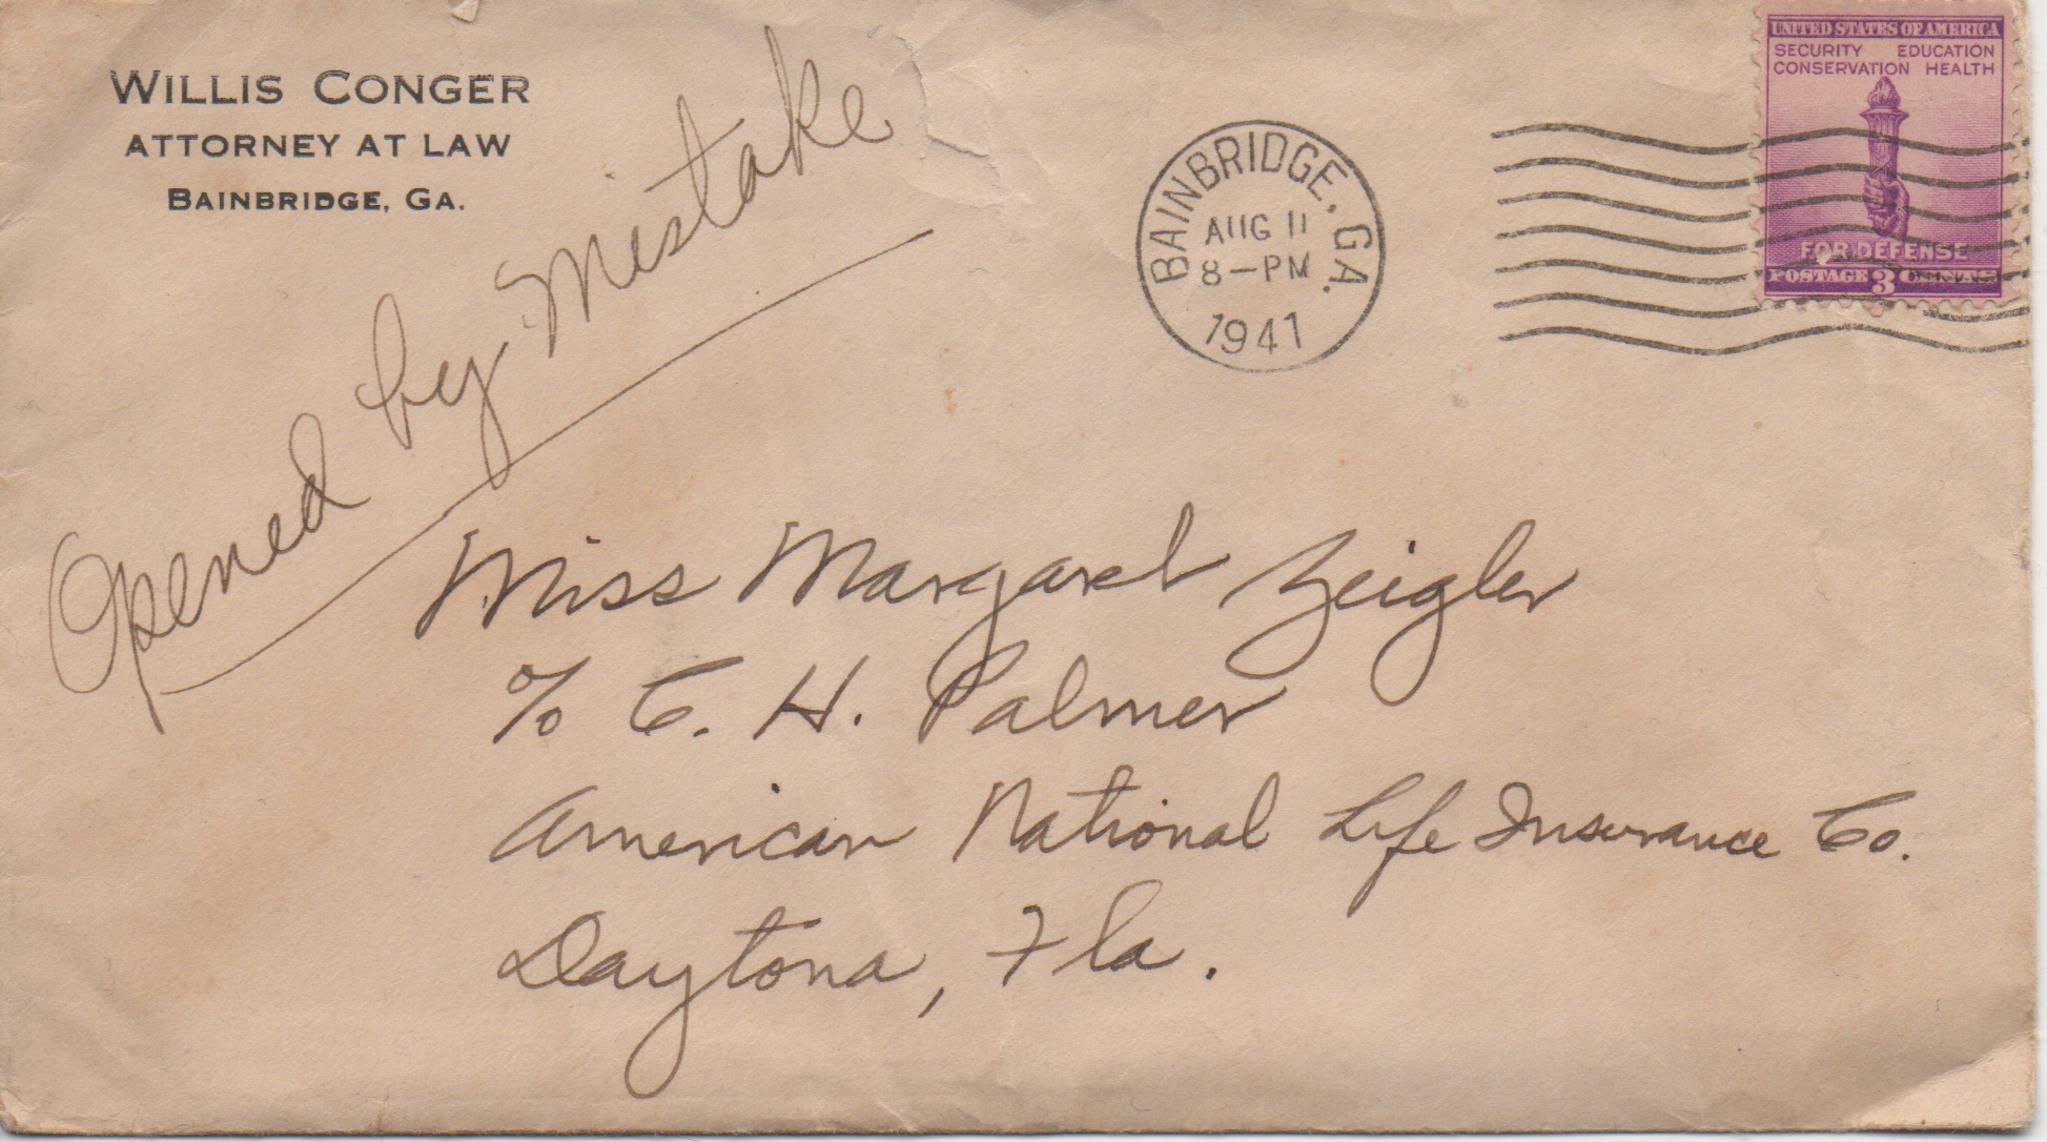 WILLIS CONGER
ATTORNEY AT LAW
BAINBRIDGE, GA.
Opened by Mistake
BAINBRIDGE, GA.
AUG 11
8-PM
1941
UNITED STATES OF AMERICA
SECURITY EDUCATION
CONSERVATION HEALTH
FOR DEFENSE
POSTAGE 3 CENTS
Miss Margaret Zeigler
℅ C. H. Palmer
American National Life Insurance Co.
Daytona, Fla.